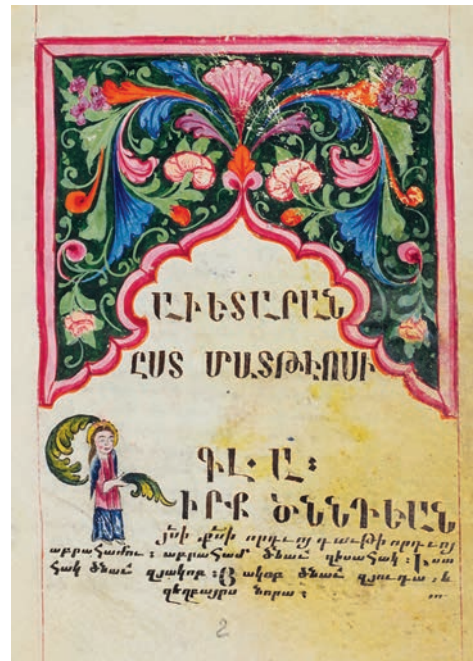 ԱՒԵՏԱՐԱՆ
ԸՍՏ ՄԱՏԹԷՈՍԻ
ԳԼ. Ա։
ԻՐՔ ԾՆՆԴԵԱՆ
յնի քնի որդւոյ դաւթի որդւոյ
աբրահամու։ աբրահամ ծնաւ զիսահակ։ Իսա
հակ ծնաւ զյակոբ։ Յակոբ ծնաւ զյուդա, և
զեղբայրս նորա։
2